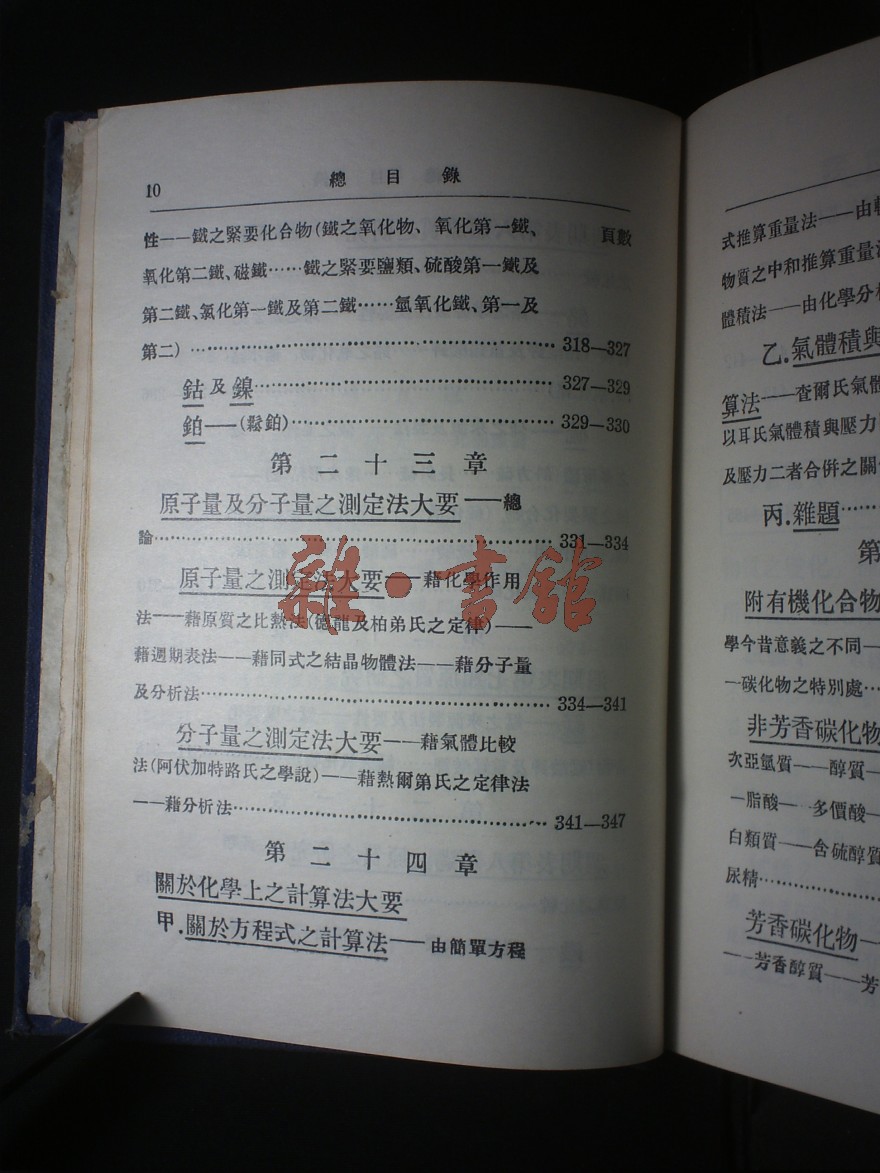 10
總目錄
頁數
性——鐵之緊要化合物(鐵之氧化物、氧化第一鐵、
氧化第二鐵、磁鐵……鐵之緊要鹽類、硫酸第一鐵及
第二鐵、氯化第一鐵及第二鐵……氫氧化鐵、第一及
第二)…318—327
鈷及鎳…327—329
鉑——(鬆鉑)…329—330
第二十三章
原子量及分子量之測定法大要——總
論…331—334
原子量之測定法大要——藉化學作用
法——藉原質之比熱法(德龍及柏弟氏之定律)——
藉週期表法——藉同式之結晶物體法——藉分子量
及分析法…334—341
分子量之測定法大要——藉氣體比較
法(阿伏加特路氏之學說)——藉熱爾第氏之定律法
——藉分析法…341—347
第二十四章
關於化學上之計算法大要
甲.關於方程式之計算法——由簡單方程
雜·書館
式推算重量法——由
物質之中和推算重量
體積法——由化學分
乙.氣體積與
算法——查爾氏氣體
以耳氏氣體積與壓力
及壓力二者合併之關
丙.雜題…
第
附有機化合物
學今昔意義之不同—
—碳化物之特別處…
非芳香碳化物
次亞氫質——醇質—
—脂酸——多價酸—
白類質——含硫醇質
尿精…
芳香碳化物—
——芳香醇質——芳